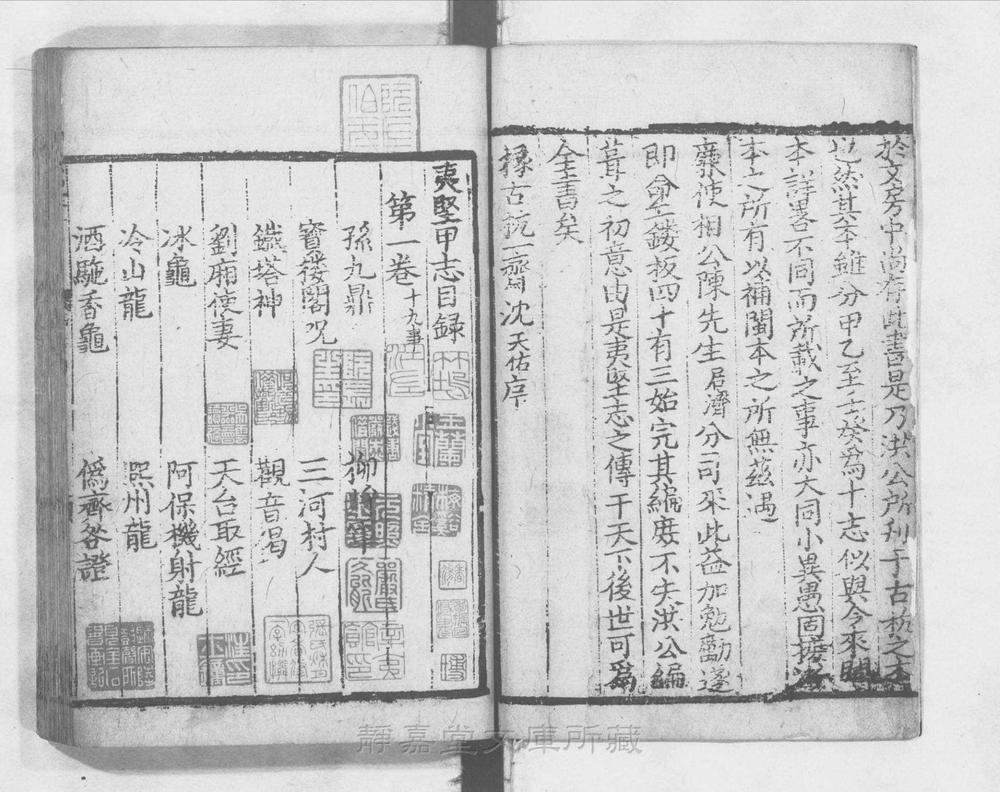 於文房中尚存此書是乃洪公所刋于古杭之本
也然其本雖分甲乙至壬癸爲十志似與今來閩
本詳畧不同而所載之事亦大同小異愚因
本之所有以補閩本之所無兹遇
廉使相公陳先生居濟分司來此益加勉勵遂
即命工鏤板四十有三始完其編庶不失洪公編
葺之初意由是夷堅志之傳于天下後世可爲
全書矣
古杭一齋沈天佑序
夷堅甲志目録
第一卷十九事
孫九鼎 柳將軍
寳樓閣呪 三河村人
鐵塔神 觀音偈
劉廂使妻 天台取經
冰龜 阿保機射龍
冷山龍 熙州龍
酒駞香龜 僞齊咎證
靜嘉堂文庫所藏